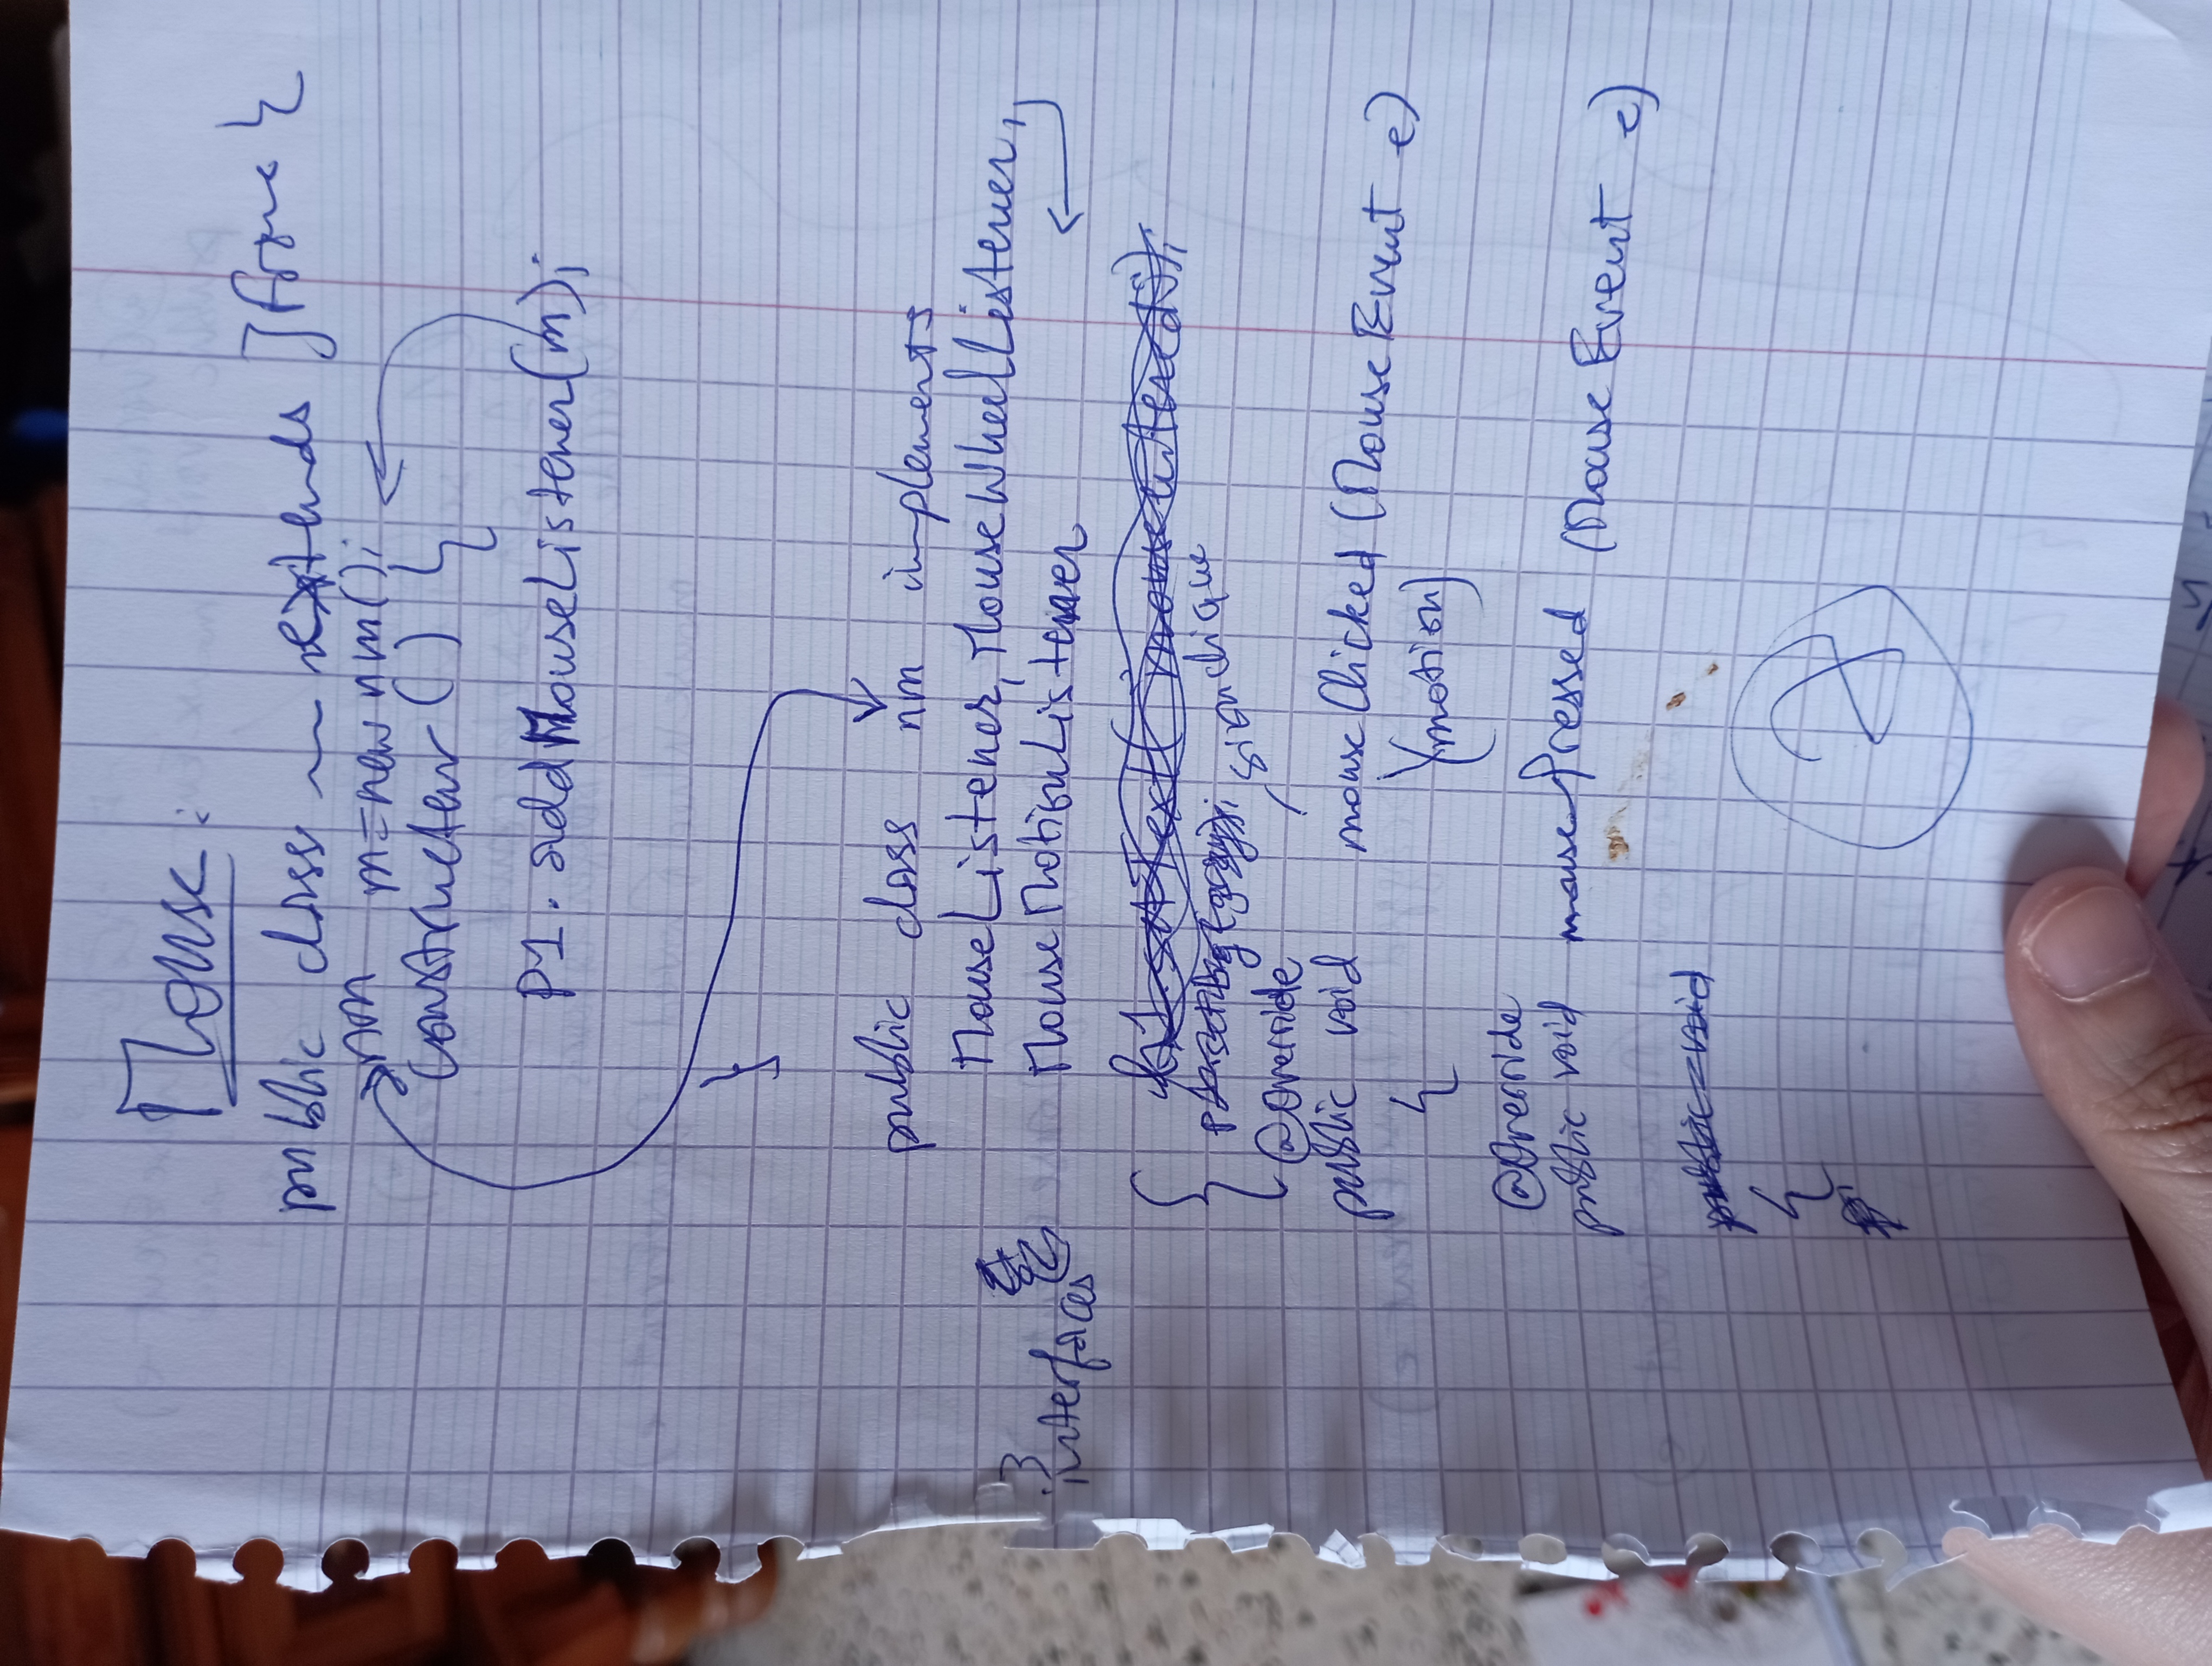 Mouse :
public class extends Jframe {
nm m=new nm();
constructeur () {
P1.addMouseListener(m);
}
public class nm implements
MouseListener, MouseWheelListener,
MouseMotionListener
3
interfaces
{
si on clique
@Override
public void mouseClicked (MouseEvent e)
{
(motion)
@Override
public void mousePressed (MouseEvent e)
public void
{
2